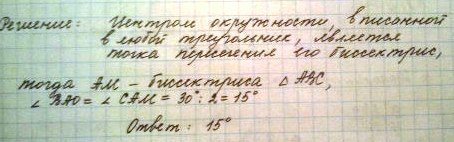 Решение: Центром окружности, вписанной
в любой треугольник, является
точка пересечения его биссектрис,
тогда AM - биссектриса △ ABC,
∠ BAO = ∠ CAM = 30° : 2 = 15°
Ответ: 15°